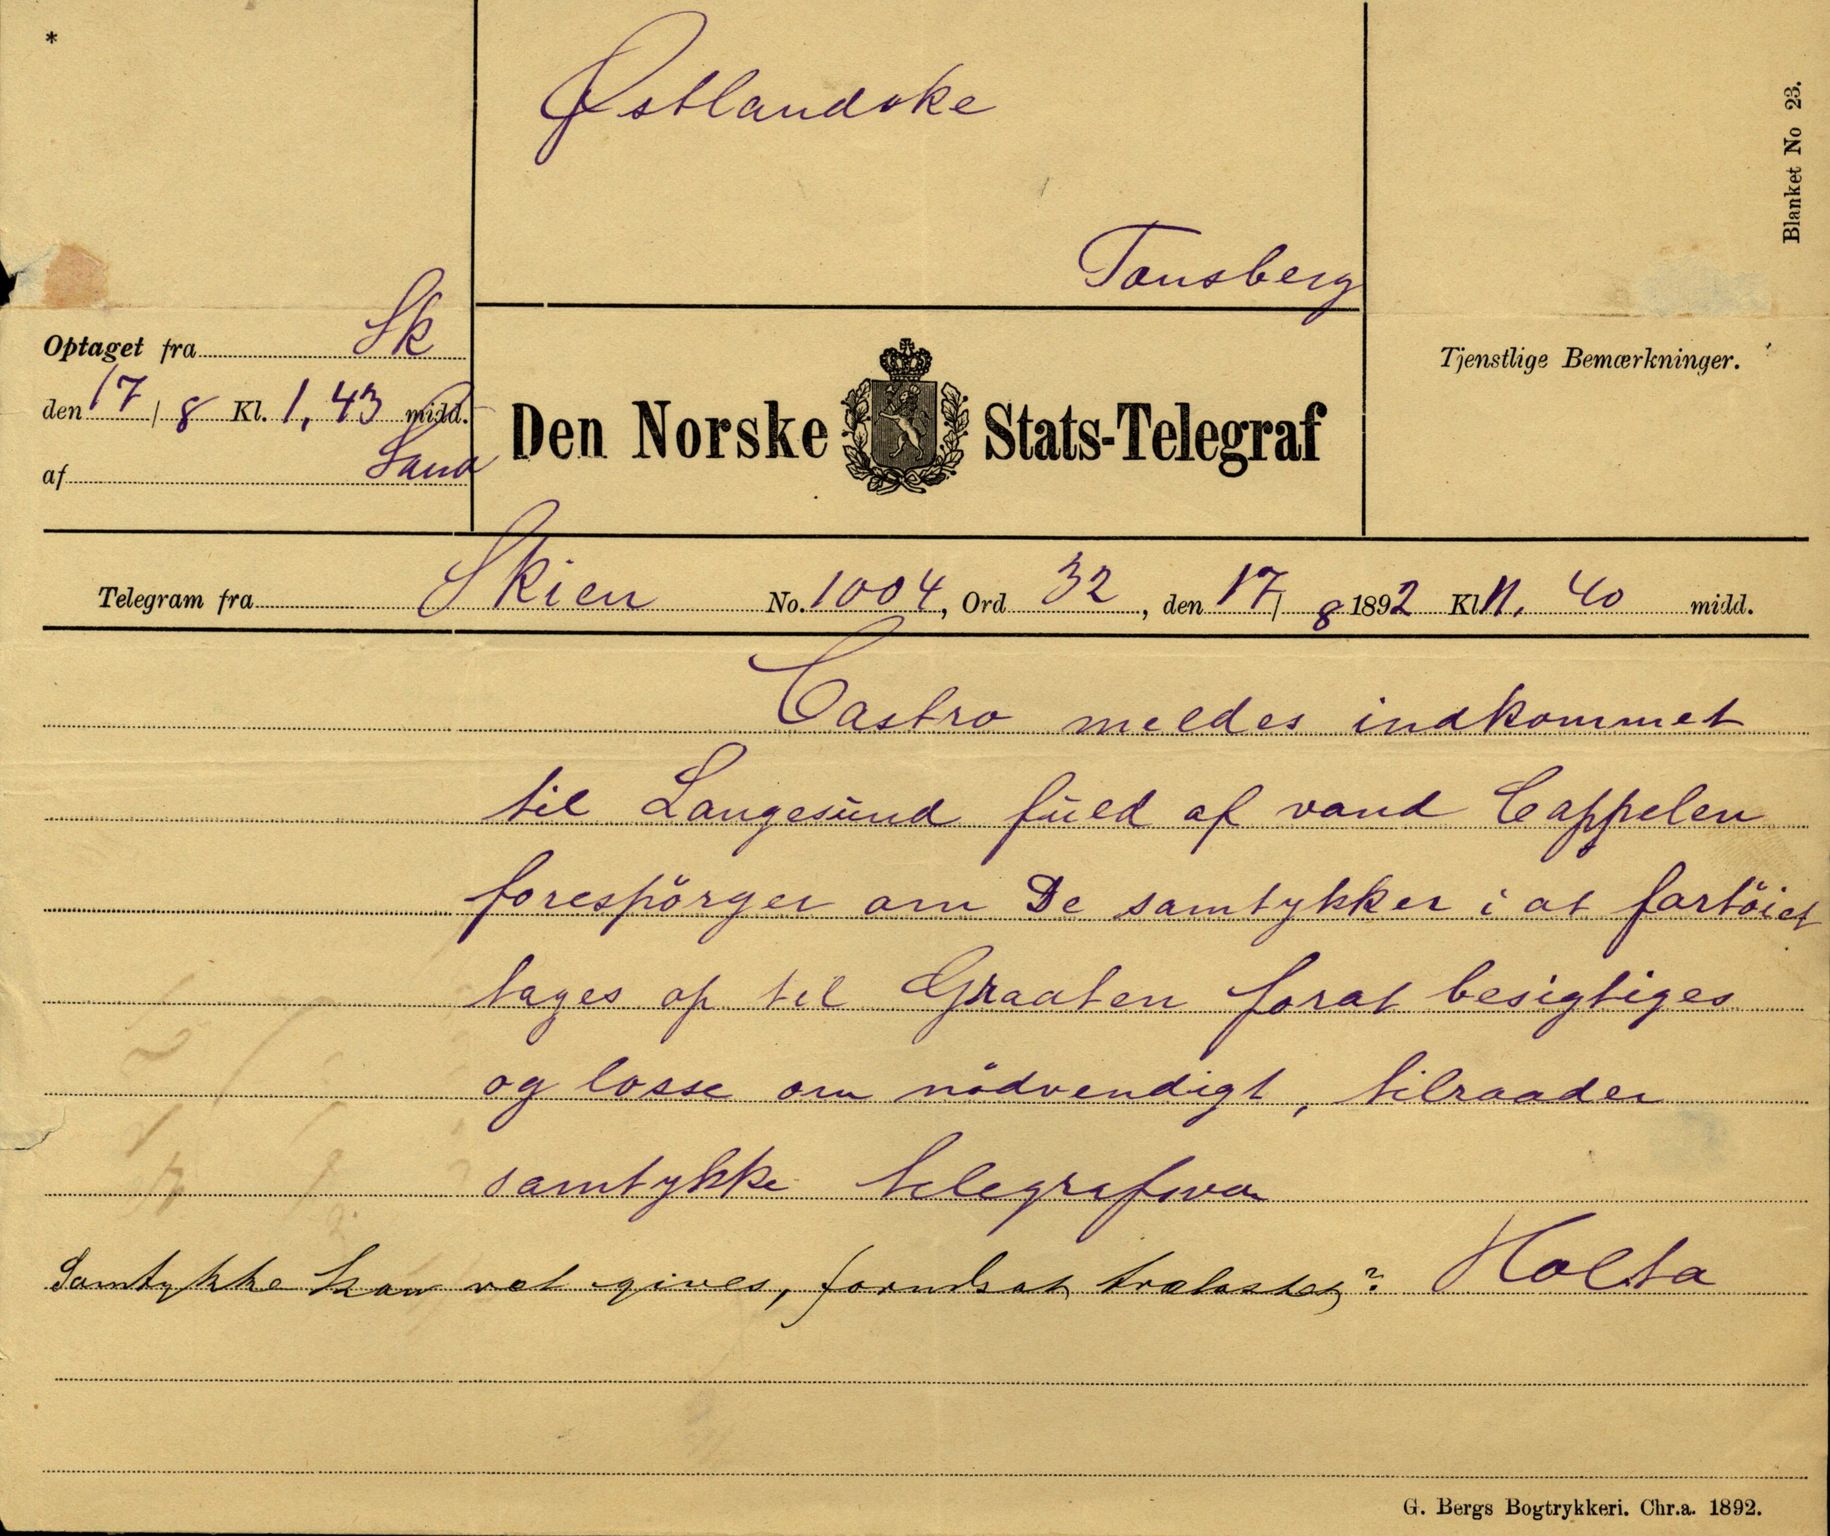 *
Østlandske
Blanket No 23.
Tønsberg
Optaget fra Sk
den 17/8 Kl. 1,43 midd.
af Sand
Den Norske Stats-Telegraf
Tjenstlige Bemærkninger.
Telegram fra Skien No. 1004, Ord 32, den 17/8 1892 Kl 11.40 midd.
Castro meldes indkommet
til Langesund fuld af vand Cappelen
forespörger om De samtykker i at fartöiet
tages op til Graaten forat besigtiges
og losse om nödvendigt, tilraader
samtykke telegrafsvar
Holta
Samtykke kan vel gives, forudsat trælastet?
G. Bergs Bogtrykkeri. Chr.a. 1892.